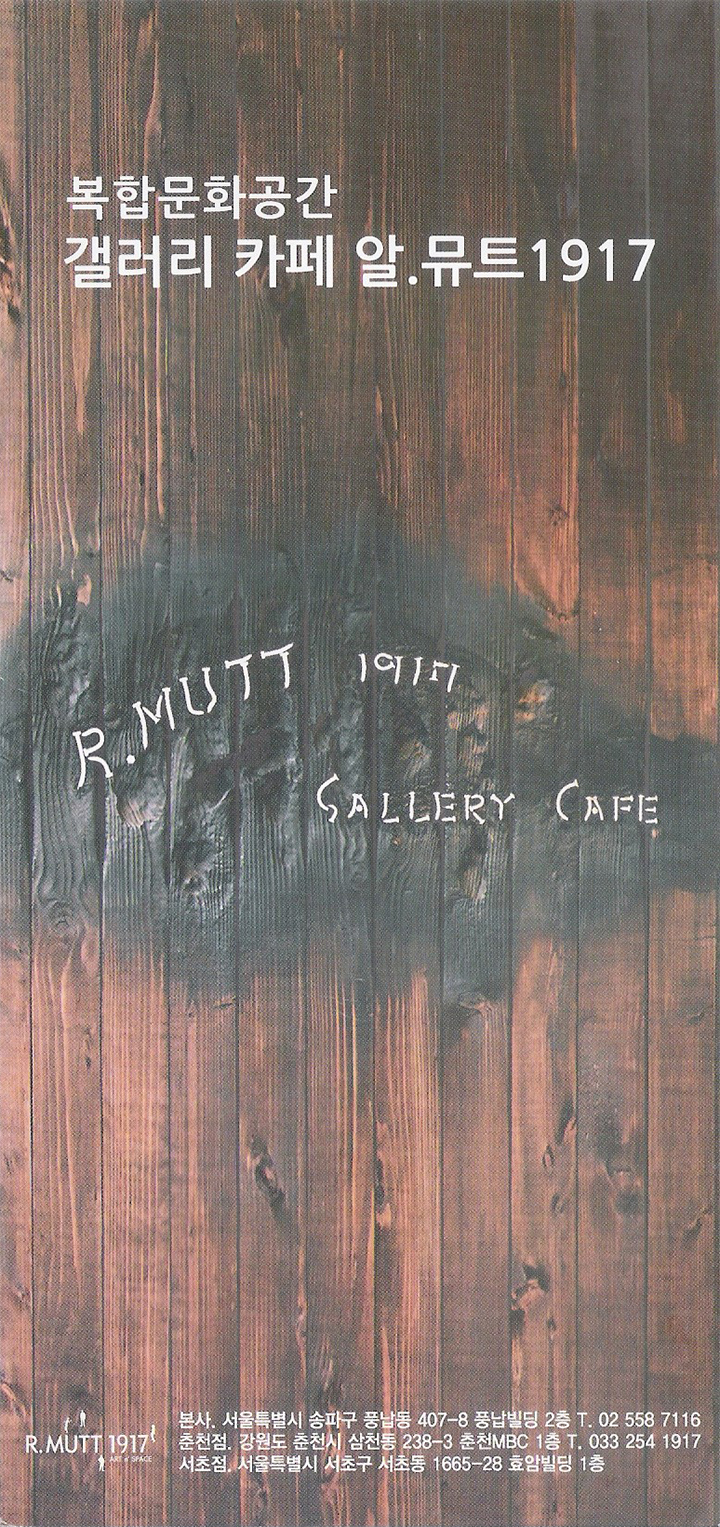 복합문화공간
갤러리 카페 알.뮤트1917
R.MUTT 1917
GALLERY CAFE
R.MUTT 1917
ART n' SPACE
본사. 서울특별시 송파구 풍납동 407-8 풍납빌딩 2층 T. 02 558 7116
춘천점. 강원도 춘천시 삼천동 238-3 춘천MBC 1층 T. 033 254 1917
서초점. 서울특별시 서초구 서초동 1665-28 효암빌딩 1층